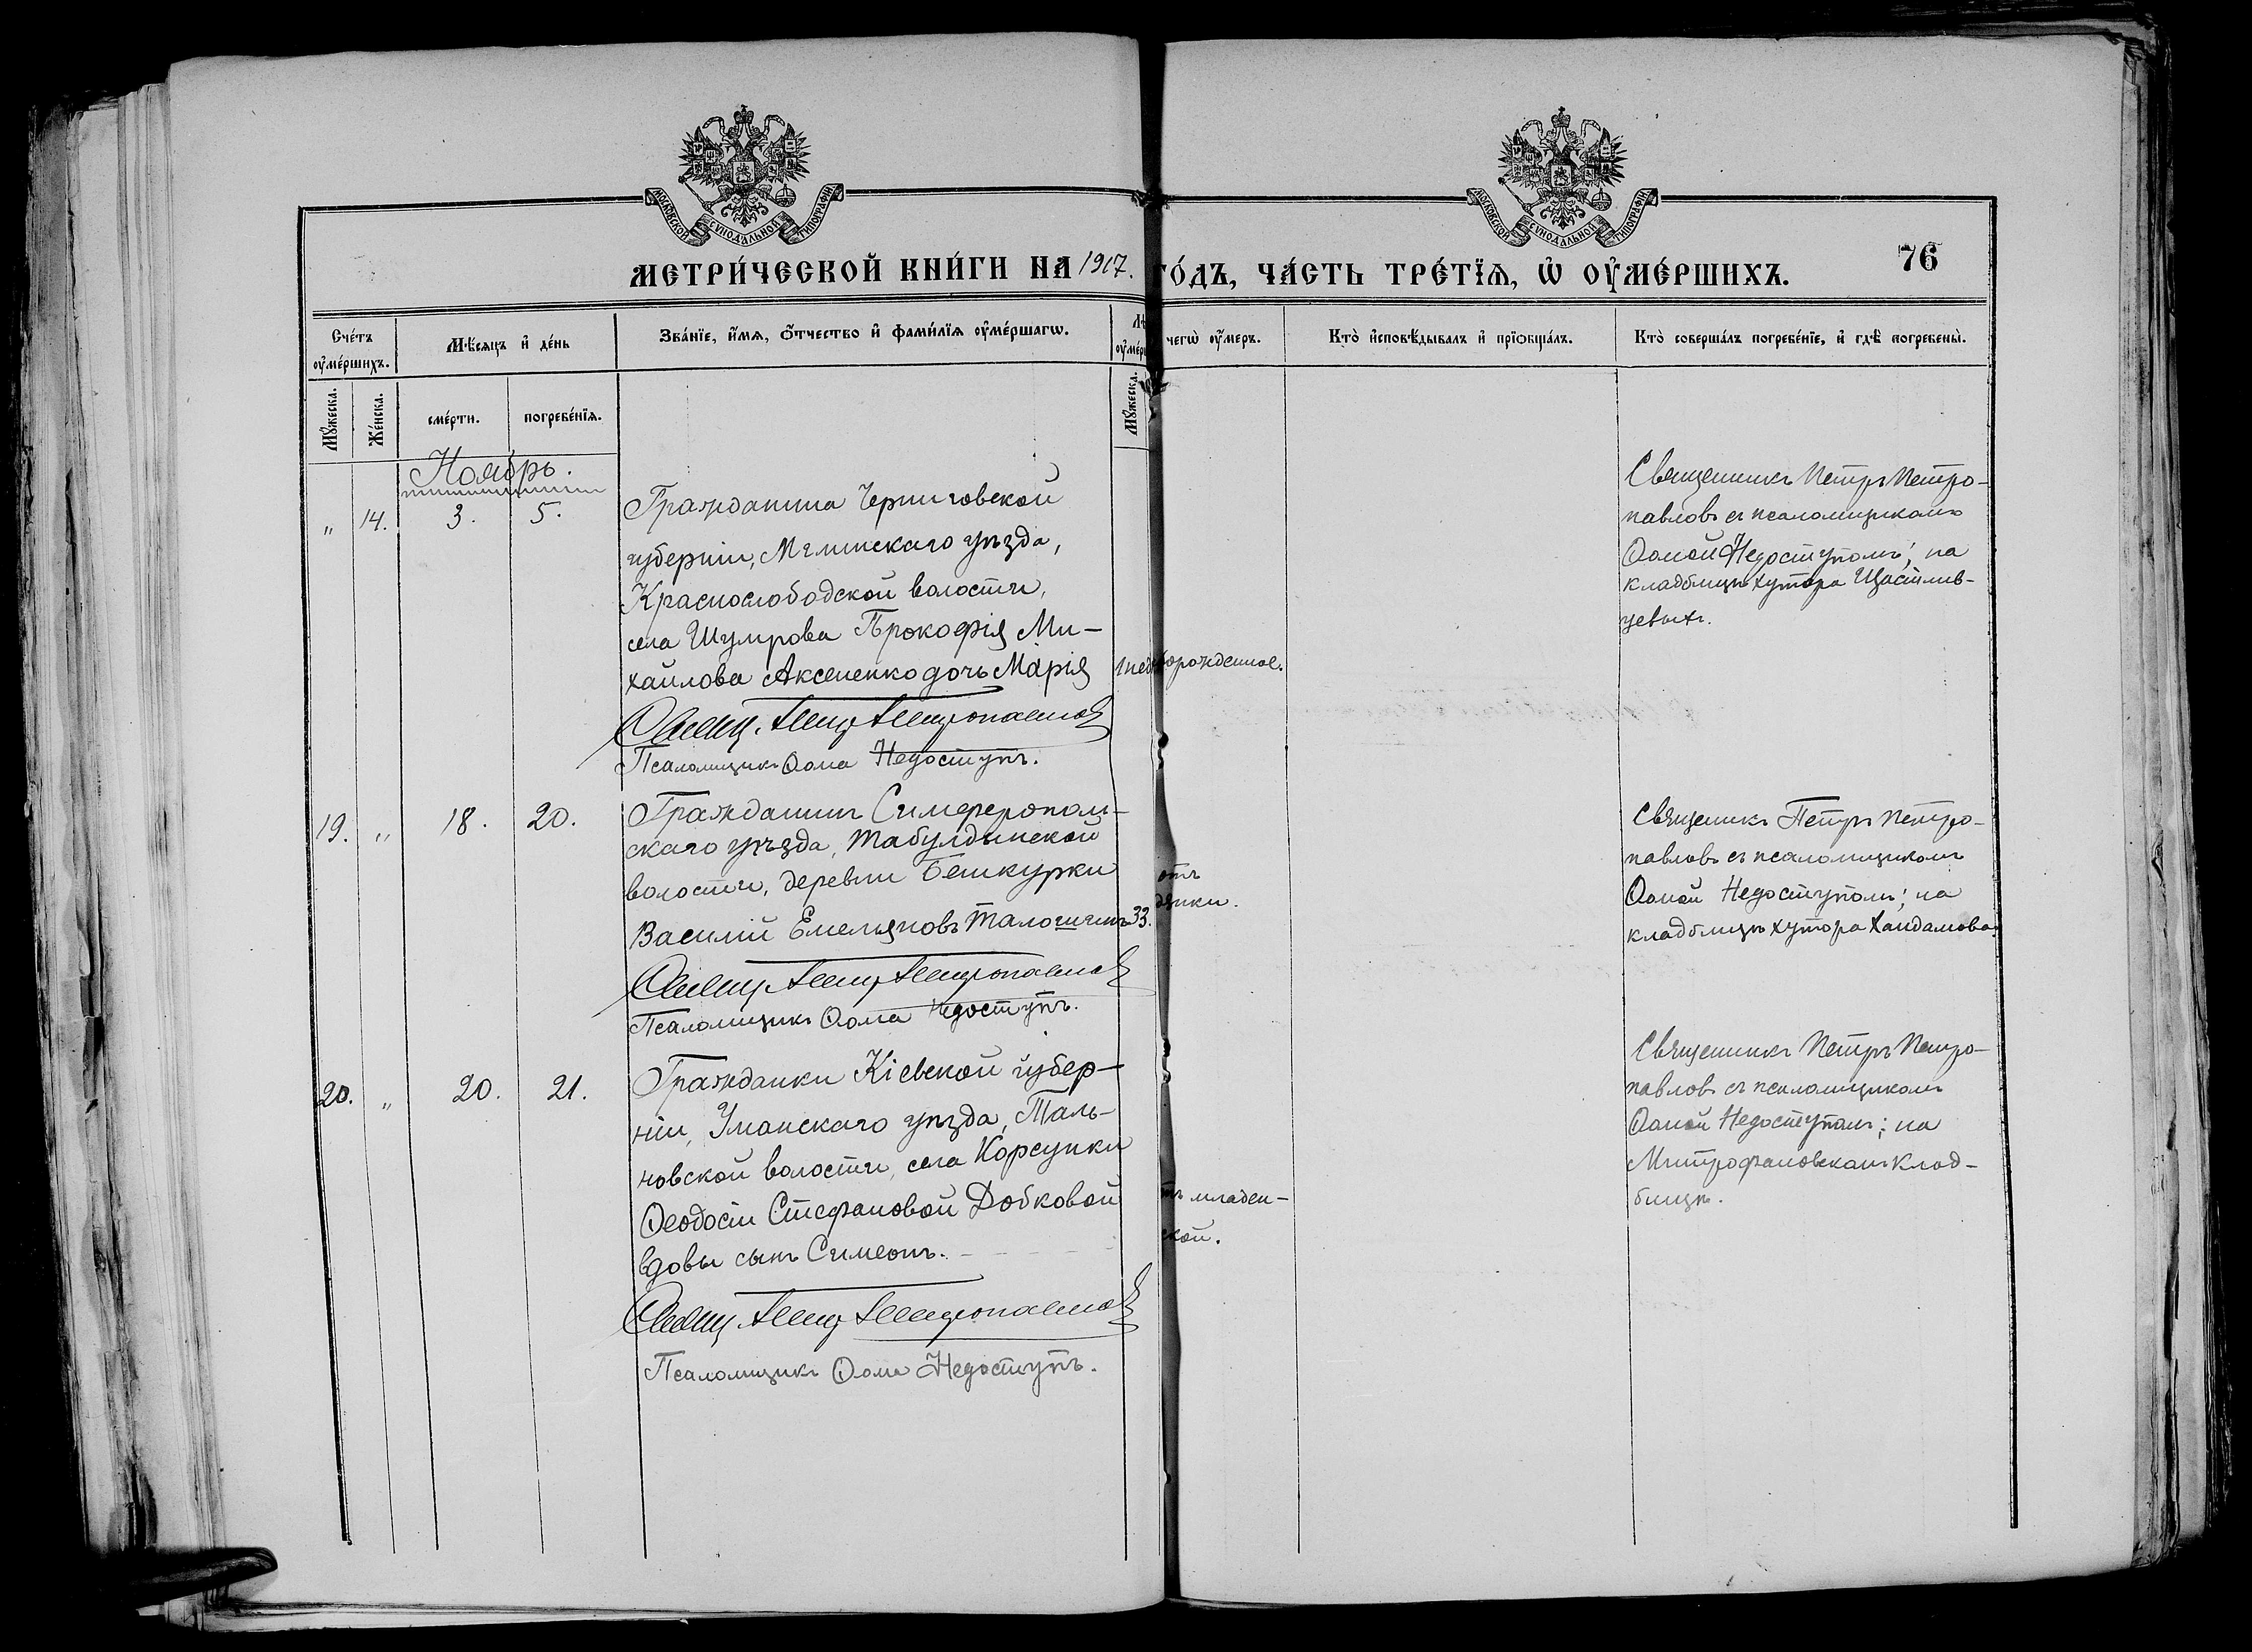 МОСКОВСКОЙ СѴНОДАЛЬНОЙ ТИПОГРАФІИ
МОСКОВСКОЙ СѴНОДАЛЬНОЙ ТИПОГРАФІИ
МЕТРИ́ЧЕСКОЙ КНИ́ГИ НА 1917. ГО́ДЪ, ЧА́СТЬ ТРЕ́ТЇѦ, Ѡ҆ ОУ҆МЕ́РШИХЪ.
76
Сче́тъ оу҆ме́ршихъ.
Мѣ́сѧцъ и҆ де́нь
Зва́нїе, и҆́мѧ, ѻ҆́тчество и҆ фами́лїѧ оу҆ме́ршагѡ.
чегѡ̀ оу҆́меръ.
Кто̀ и҆сповѣ́дывалъ и҆ прїѡбща́лъ.
Кто̀ соверша́лъ погребе́нїе, и҆ гдѣ̀ погребены̀.
Мꙋ́жеска.
Же́нска.
сме́рти.
погребе́нїѧ.
Мꙋ́жеска.
Ноябрь.
„ 14. 3. 5.
Гражданина Черниговской
губерніи, Мглинскаго уѣзда,
Краснослободской волости,
села Шумрова Прокофія Ми-
хайлова Аксененко дочь Марія
Свящ. Петр Петропавлов
Псаломщикъ Ѳома Недоступъ.
недорожденное.
Священникъ Петръ Петро-
павловъ съ псаломщикомъ
Ѳомой Недоступомъ; на
кладбищѣ хутора Щастлив-
цевыхъ.
19. „ 18. 20.
Гражданинъ Симферополь-
скаго уѣзда, Табулдинской
волости, деревни Бешкурки
Василій Емельяновъ 33.
Свящ. Петр Петропавлов
Псаломщикъ Ѳома Недоступъ.
отъ
Священникъ Петръ Петро-
павловъ съ псаломщикомъ
Ѳомой Недоступомъ; на
кладбищѣ хутора Хандамова.
20. „ 20. 21.
Гражданки Кіевской губер-
ніи, Уманскаго уѣзда, Таль-
новской волости, села Корсунки
Ѳеодосіи Стефановой Добковой
вдовы сынъ Симеонъ.
Свящ. Петр Петропавлов
Псаломщикъ Ѳома Недоступъ.
тъ младен-
ской.
Священникъ Петръ Петро-
павловъ съ псаломщикомъ
Ѳомой Недоступомъ; на
Митрофановскомъ клад-
бищѣ.